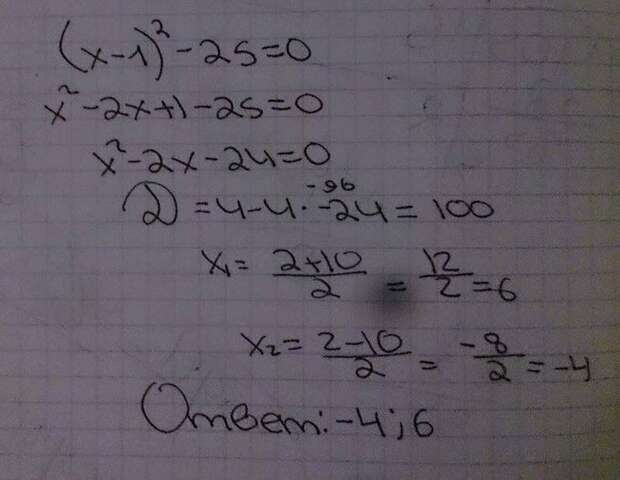 (x-1)² - 25 = 0
x² - 2x + 1 - 25 = 0
x² - 2x - 24 = 0
-96
D = 4 - 4 · -24 = 100
x₁ = (2+10)/2 = 12/2 = 6
x₂ = (2-10)/2 = -8/2 = -4
Ответ: -4; 6